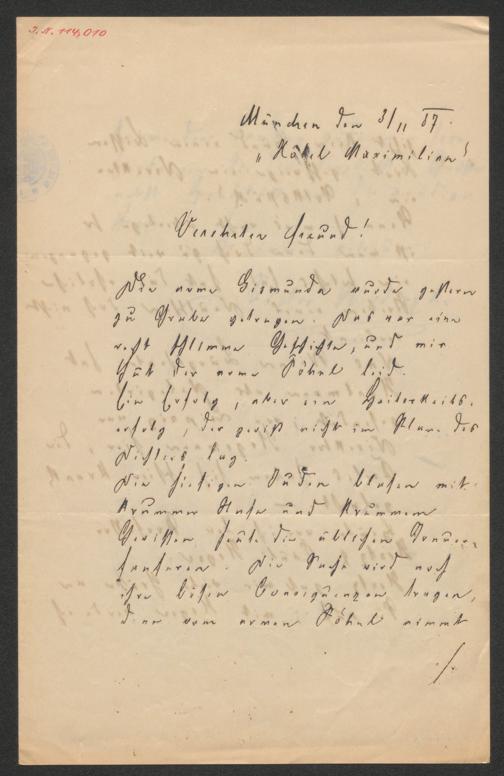 J.N. 114,010
München den 3/11 87.
„Hôtel Maximilian“
Verehrter Freund!
Die arme Gismunda wurde gestern
zu Grabe getragen. Das war eine
recht schlimme Geschichte, und mir
thut der arme Pöhnl leid.
Ein Erfolg, aber ein Heiterkeits-
erfolg, der gewiß nicht im Plane des
Dichters lag.
Die hiesigen Juden blasen mit
krummer Nase und krummem
Gewissen heute die üblichen Trauer-
fanfaren. Die Sache wird noch
ihre bösen Consequenzen tragen,
denn vom armen Pöhnl nimmt
./.